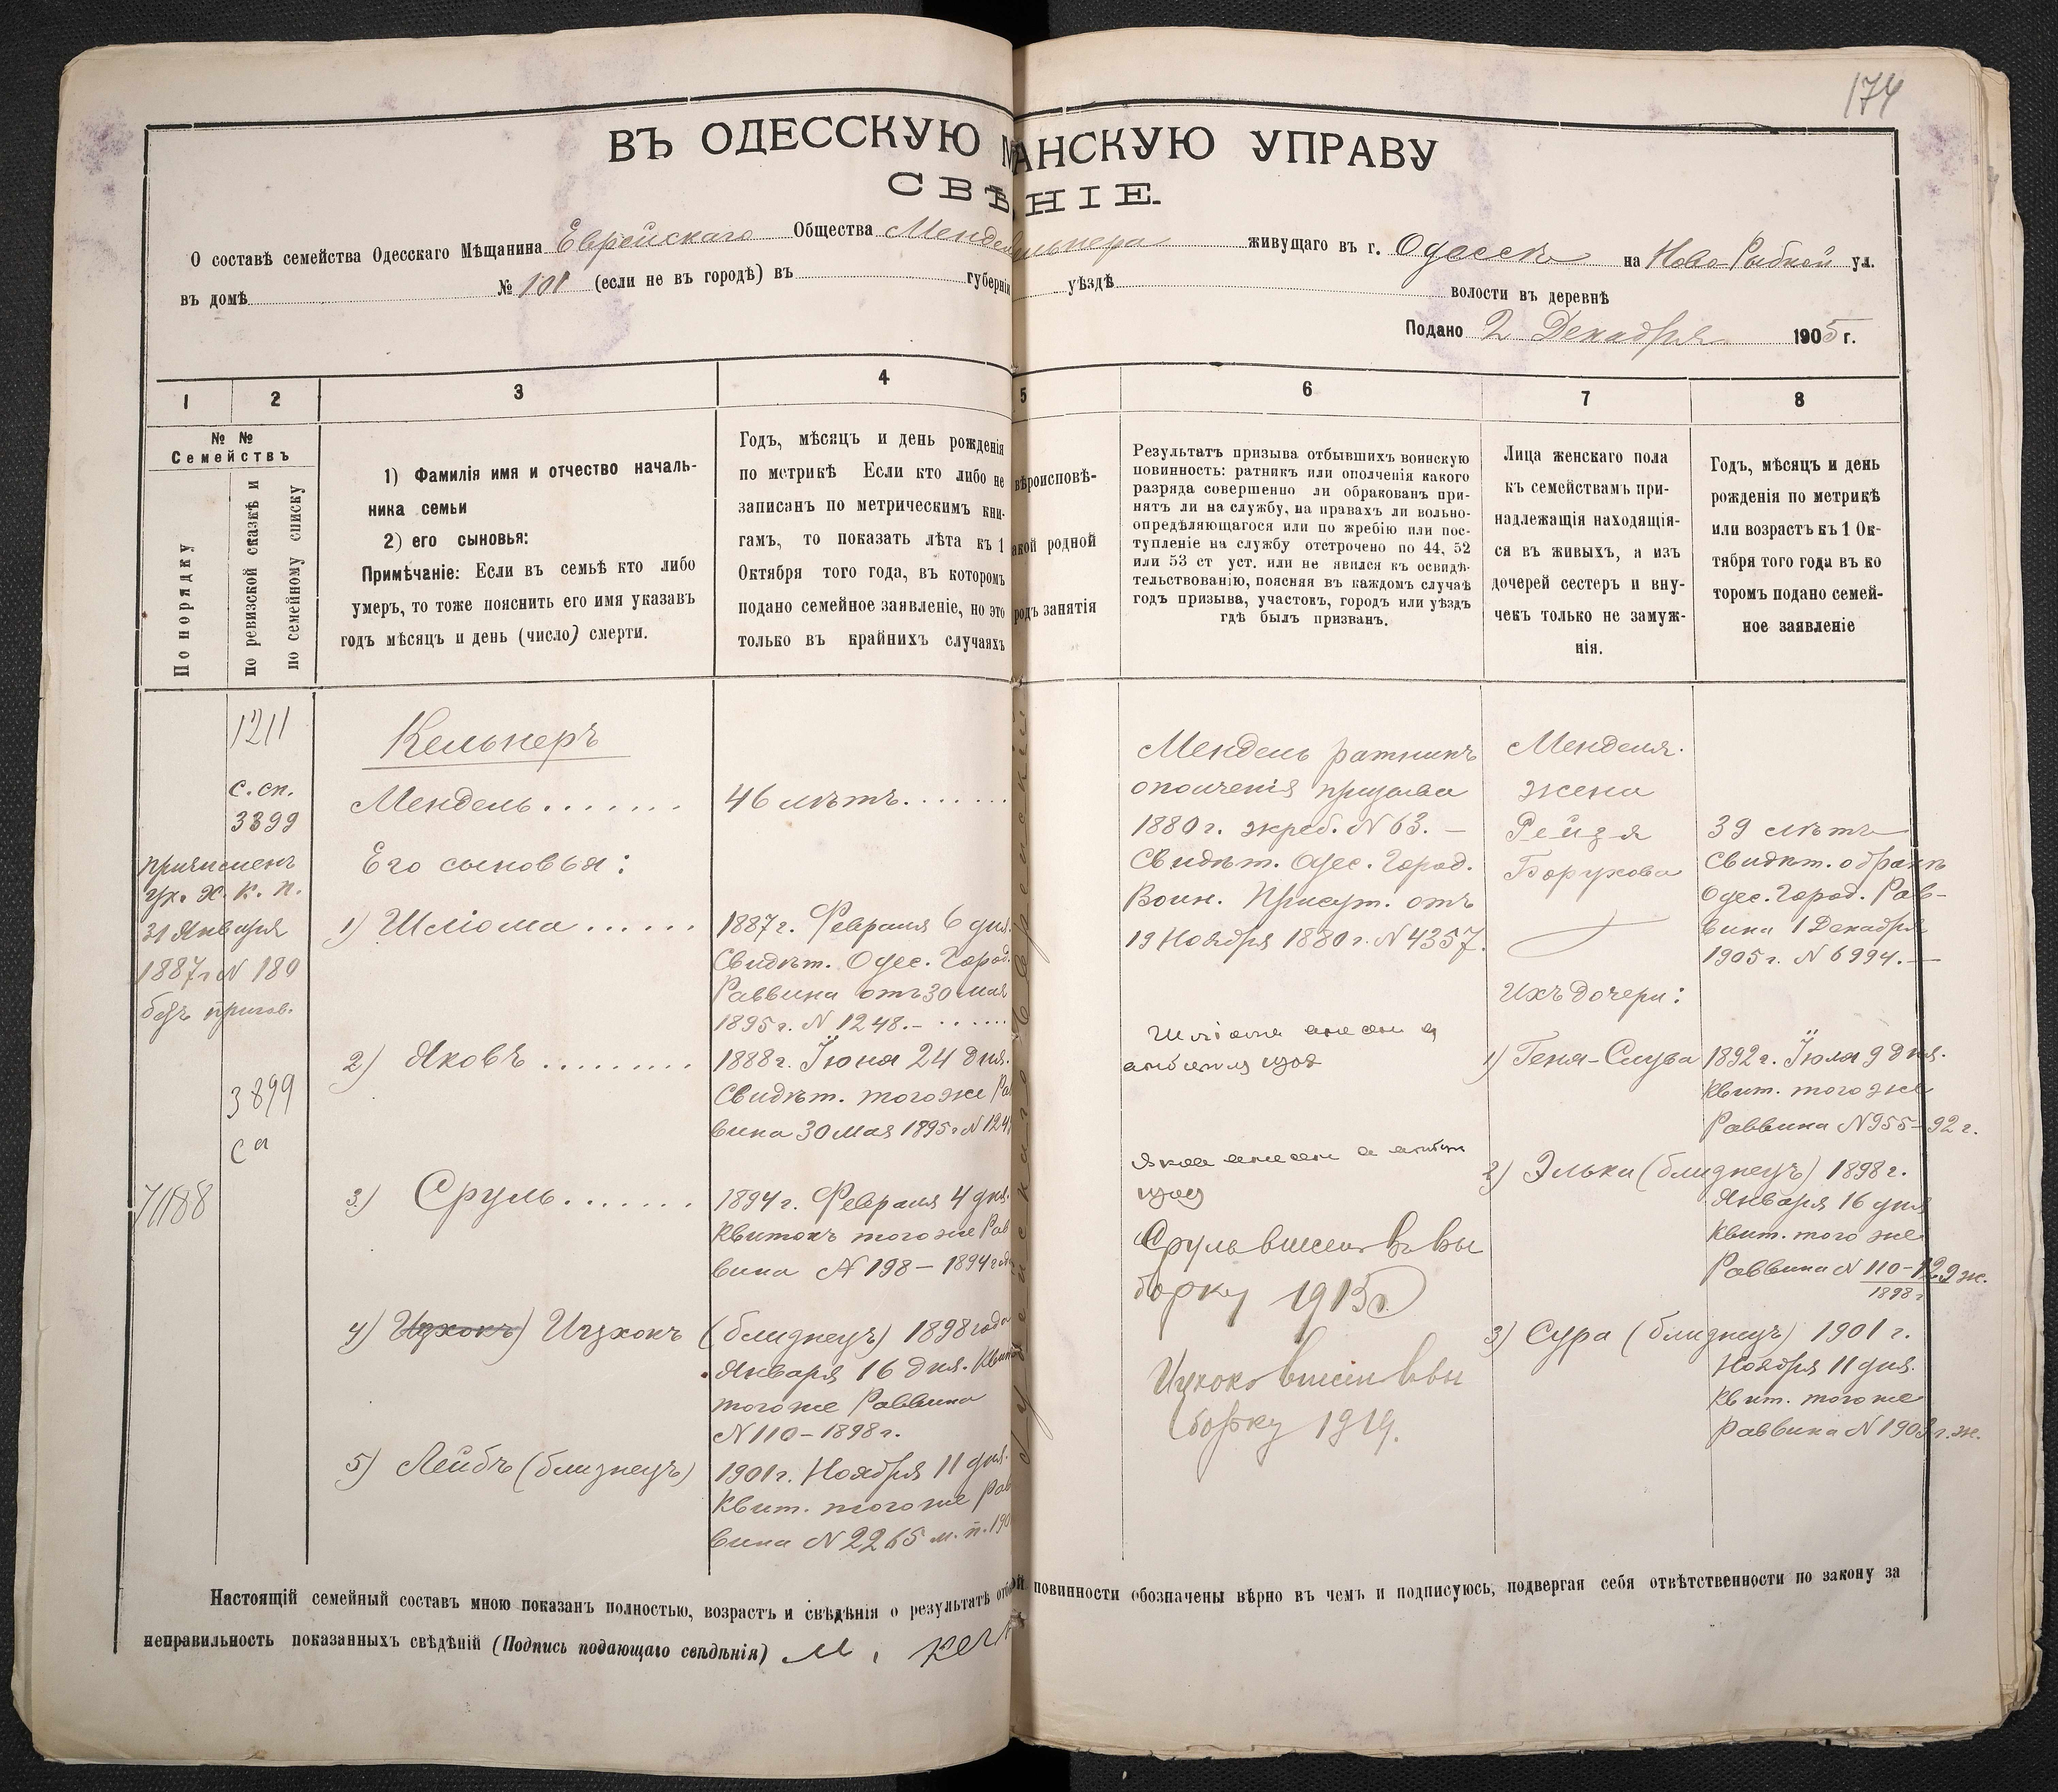 174
ВЪ ОДЕССКУЮ М АНСКУЮ УПРАВУ
СВѢ НІЕ.
О составѣ семейства Одесскаго Мѣщанина Еврейскаго Общества Мендел ельнера живущаго въ г. Одессѣ на Ново-Рыбной ул.
въ домѣ № 101 (если не въ городѣ) въ губерніи уѣздѣ волости въ деревнѣ
Подано 2 Декабря 1905 г.
1 2 3 4 5 6 7 8
№ №
Семействъ
По порядку
по ревизской сказкѣ и
по семейному списку
1) Фамилія имя и отчество началь-
ника семьи
2) его сыновья:
Примѣчаніе: Если въ семьѣ кто либо
умеръ, то тоже пояснить его имя указавъ
годъ мѣсяцъ и день (число) смерти.
Годъ, мѣсяцъ и день рожденія
по метрикѣ Если кто либо не
записанъ по метрическимъ кни-
гамъ, то показать лѣта къ 1
Октября того года, въ которомъ
подано семейное заявленіе, но это
только въ крайнихъ случаяхъ
вѣроисповѣ-
акой родной
родъ занятія
Результатъ призыва отбывшихъ воинскую
повинность: ратникъ или ополченія какого
разряда совершенно ли обракованъ при-
нятъ ли на службу, на правахъ ли вольно-
опредѣляющагося или по жребію или пос-
тупленіе на службу отстрочено по 44, 52
или 53 ст уст. или не явился къ освидѣ-
тельствованію, поясняя въ каждомъ случаѣ
годъ призыва, участокъ, городъ или уѣздъ
гдѣ былъ призванъ.
Лица женскаго пола
къ семействамъ при-
надлежащія находящія-
ся въ живыхъ, а изъ
дочерей сестеръ и вну-
чекъ только не замуж-
нія.
Годъ, мѣсяцъ и день
рожденія по метрикѣ
или возрастъ къ 1 Ок-
тября того года въ ко
торомъ подано семей-
ное заявленіе
1211
с. сп.
3899
Причисленъ
ук. Х. К. П.
31 Января
1887 г N 180
безъ пригов.
3899
са
71188
Кельнеръ
Мендель . . . . . . .
Его сыновья:
1) Шліома . . . . . .
2) Яковъ . . . . . . . . .
3) Сруль . . . . . . .
4) Ицхокъ) Ицхокъ
5) Лейбъ (близнецъ)
46 лѣтъ . . . . . . .
1887 г. Февраля 6 дня.
Свидѣт. Одес. Город.
Раввина отъ 30 мая
1895 г. N 1248. — . . . . . .
1888 г. Іюня 24 дня.
Свидѣт. того же Рав
вина 30 Мая 1895 г N 124
1894 г. Февраля 4 дня.
Квитокъ того же Рав
вина N 198 — 1894 года
(близнецъ) 1898 года
Января 16 дня. Квит
того же Раввина
N 110 — 1898 г.
1901 г. Ноября 11 дня.
Квит. того же Рав
вина N 2265 м. п. 190
Мендель ратникъ
ополченія призыва
1880 г. жреб. N 63. —
Свидѣт. Одес. Город.
Воин. Присут. отъ
19 Ноября 1880 г. N 4357.
Сруль внесенъ въ вы
борку 1915 г.
Ицхокъ внесен въ вы
борку 1919.
Менделя
жена
Рейзя
Борухова
Ихъ дочери:
1) Геня-Слува
2) Элька (близнецъ) 1898 г.
3) Сура (близнецъ) 1901 г.
39 лѣтъ
Свидѣт. о бракѣ
Одес. Город. Рав-
вина 1 Декабря
1905 г. N 6994. —
1892 г. Іюля 9 дня.
Квит. того же
Раввина N 955 — 92 г.
Января 16 дня
Квит. того же
Раввина N 110-129 ж.
1898 г
Ноября 11 дня.
Квит. того же
Раввина N 1901 г. ж.
Настоящій семейный составъ мною показанъ полностью, возрастъ и свѣдѣнія о результатѣ отбы ой повинности обозначены вѣрно въ чемъ и подписуюсь, подвергая себя отвѣтственности по закону за
неправильность показанныхъ свѣдѣній (Подпись подающаго свѣдѣнія) М. Кел